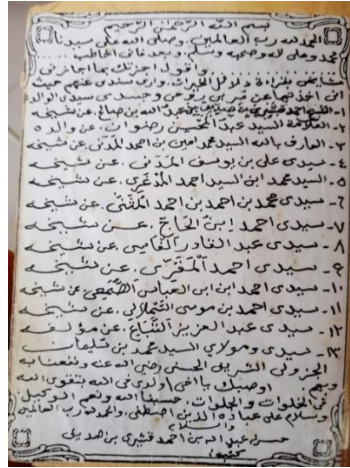 بسم الله الرحمن الرحيم
الحمد لله رب العالمين وصلى الله على سيدنا
محمد وعلى اله وصحبه وسلم وبعد
واقول اجزتك بما اجازني
مشايخي بقراءة دلائل الخيرات وارف سندي عنهم حيث
اني اخذتها عن مربي روحي وجسدي سيدي الوالد
١- الشيخ احمد قشيري بن صديق عن عبد الله بن صالح عن شيخه
٢- العلامة السيد عبد المحسن رضوان عن والده
٣- العارف بالله السيد محمد امين بن احمد المدني عن شيخه
٤- سيدي علي بن يوسف المدني. عن شيخه
٥- السيد محمد ابن السيد احمد المدغري. عن شيخه
٦- سيدي محمد بن احمد بن احمد المثنى. عن شيخه
٧- سيدي احمد ابن الحاج. عن شيخه
٨- سيدي عبد القادر الفاسي عن شيخه
٩- سيدي احمد المقري. عن شيخه
١٠- سيدي احمد ابن ابي العباس الصمعي. عن شيخه
١١- سيدي احمد بن موسى السملالي. عن شيخه
١٢- سيدي عبد العزيز التباع. عن مؤلفه
١٣- سيدي ومولاي السيد محمد بن سليمان
الجزولي الشريف الحسني رضي الله عن ونفعنا به
وبهم اوصيك يا اخي اولدي في الله بتقوى الله
في الخلوات والجلوات. حسبنا الله ونعم الوكيل
وسلام على عباده الذين اصطفى. والحمد لله رب العالمين
والسلام
حسن عبد الله بن احمد قشيري بن صديق